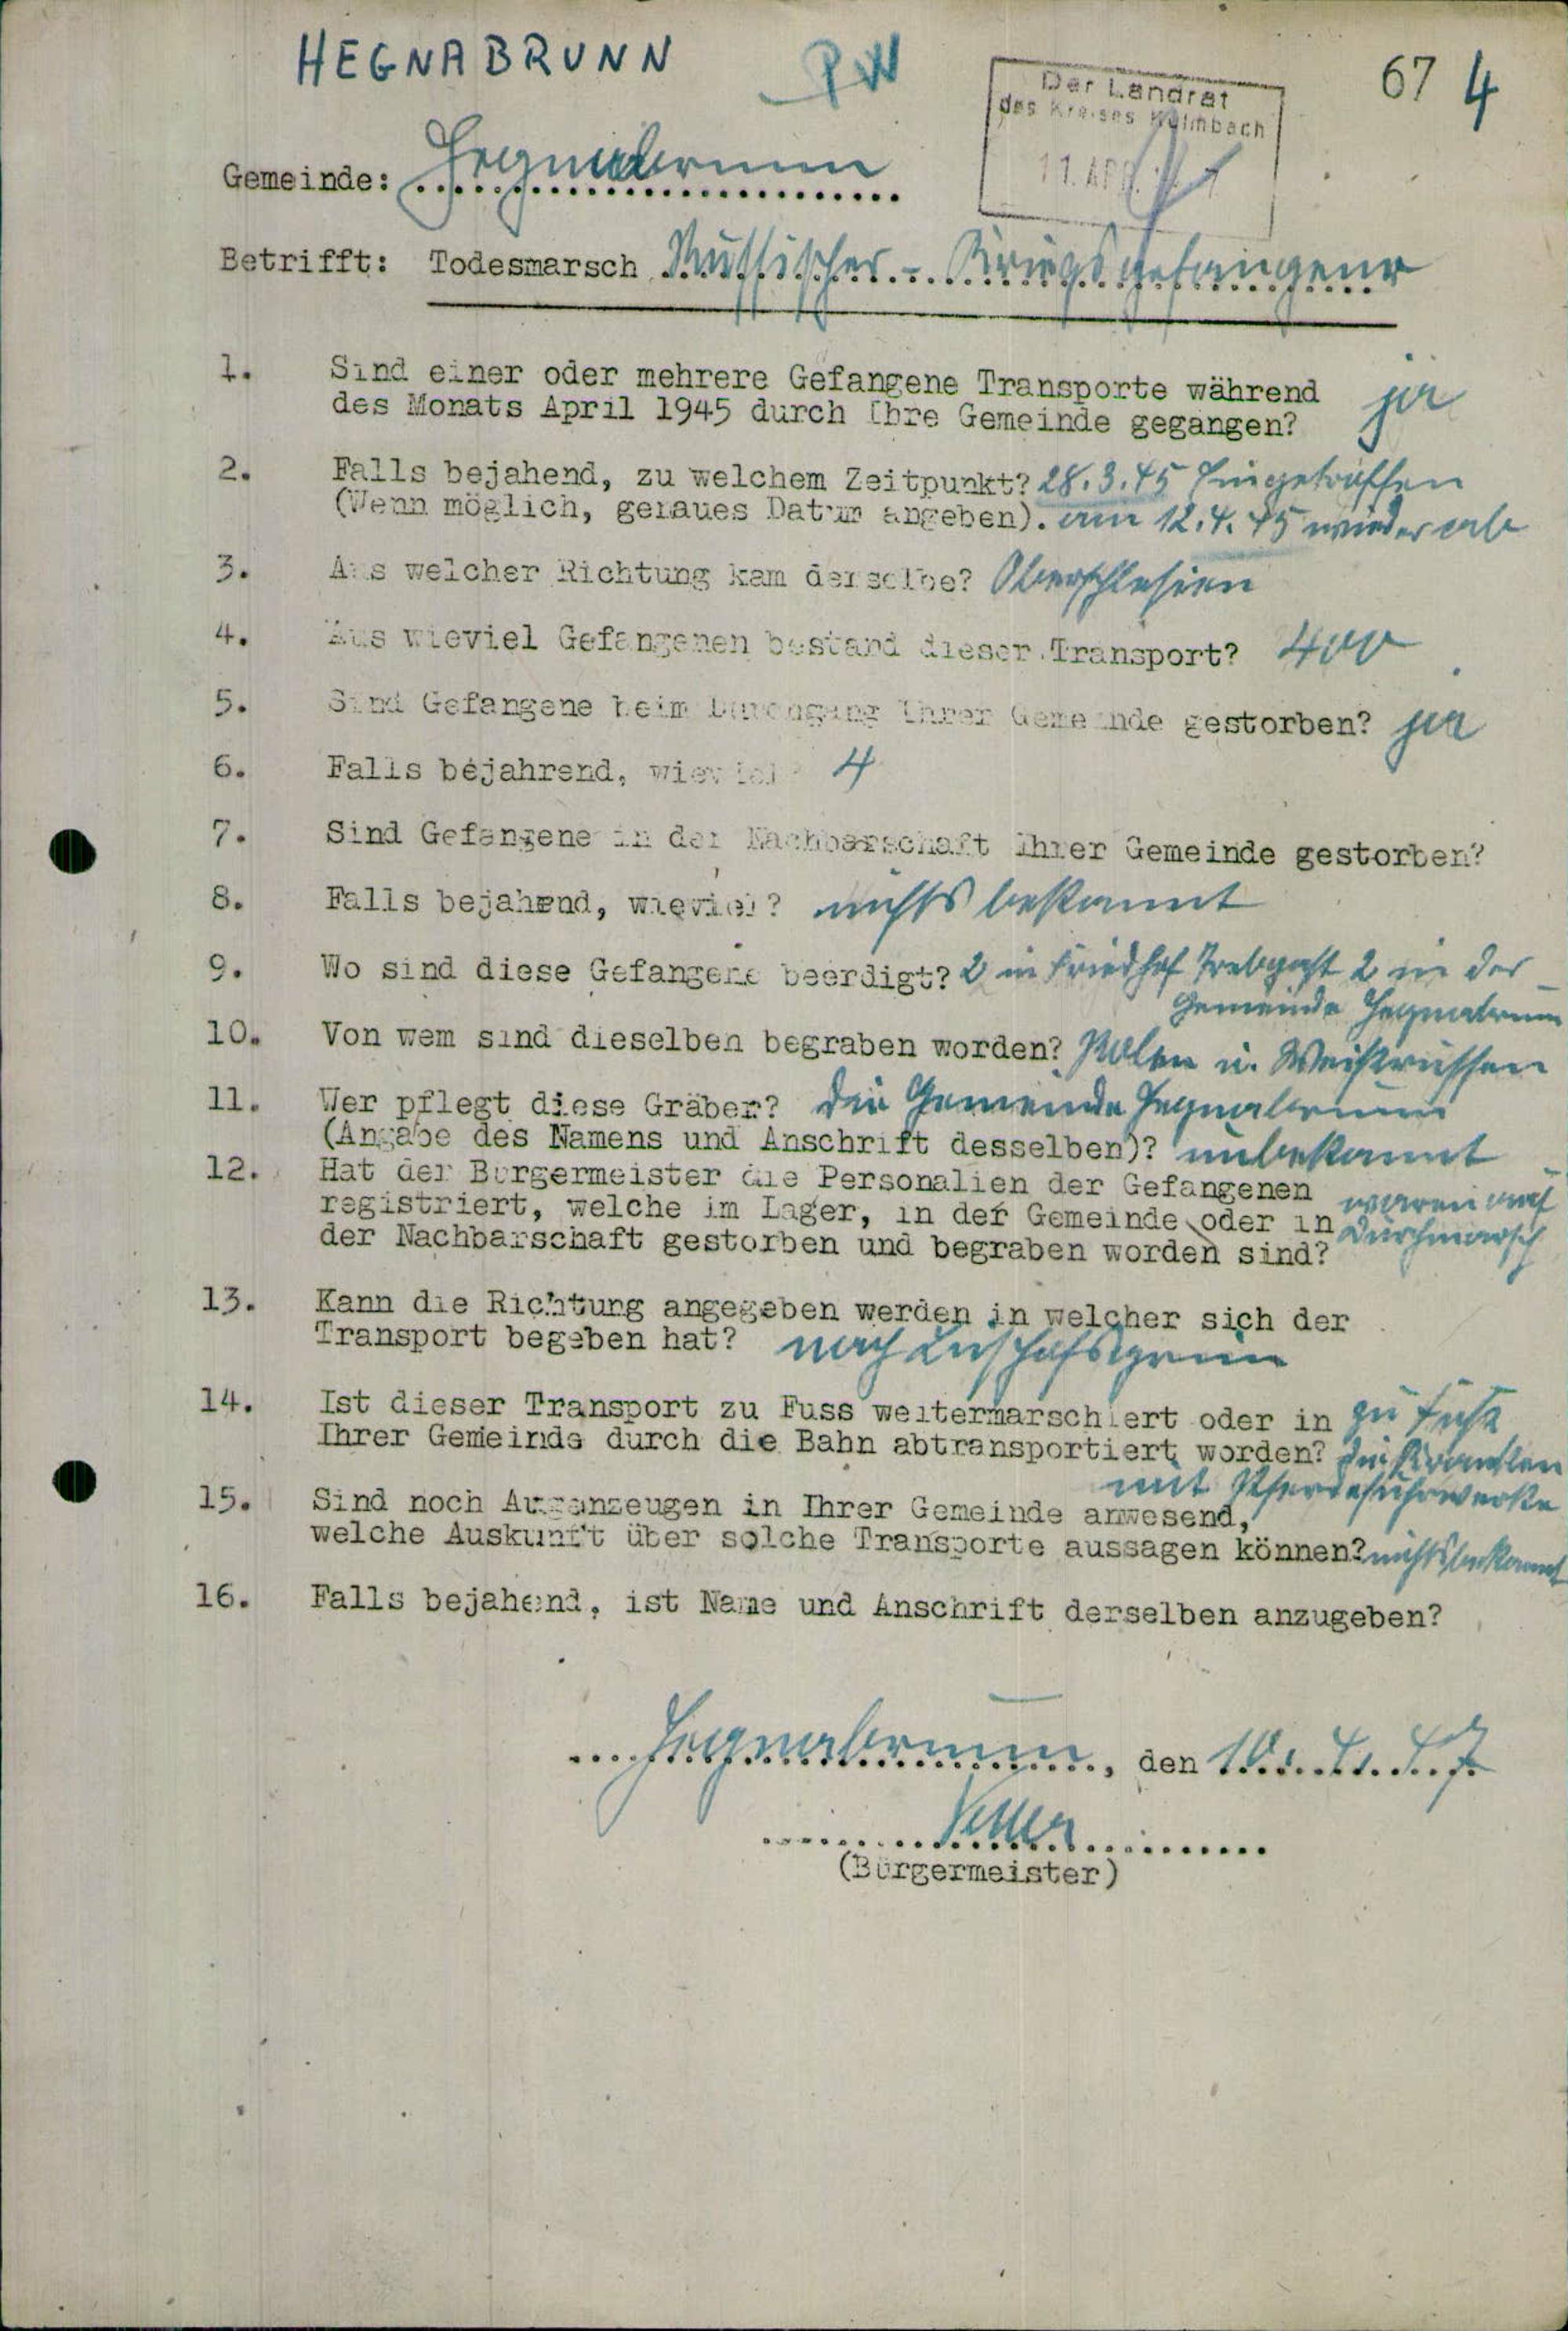 HEGNABRUNN PW
67 4
Der Landrat
des Kreises Kulmbach
11. APR.
Gemeinde: Hegnabrunn
Betrifft: Todesmarsch Russischer - Kriegsgefangener
1. Sind einer oder mehrere Gefangene Transporte während ja
des Monats April 1945 durch Ihre Gemeinde gegangen?
2. Falls bejahend, zu welchem Zeitpunkt? 28.3.45 Eingetroffen
(Wenn möglich, genaues Datum angeben). am 12.4.45 wieder ab
3. Aus welcher Richtung kam derselbe? Oberschlesien
4. Aus wieviel Gefangenen bestand dieser Transport? 400
5. Sind Gefangene beim Durchgang Ihrer Gemeinde gestorben? ja
6. Falls bejahrend, wieviel? 4
7. Sind Gefangene in der Nachbarschaft Ihrer Gemeinde gestorben?
8. Falls bejahend, wieviel? nichts bekannt
9. Wo sind diese Gefangene beerdigt? 2 in Friedhof Trebgast 2 in der
Gemeinde Hegnabrunn
10. Von wem sind dieselben begraben worden? Polen u. Weißrussen
11. Wer pflegt diese Gräber? Die Gemeinde Hegnabrunn
(Angabe des Namens und Anschrift desselben)? unbekannt
12. Hat der Bürgermeister die Personalien der Gefangenen waren auf
registriert, welche im Lager, in der Gemeinde oder in Durchmarsch
der Nachbarschaft gestorben und begraben worden sind?
13. Kann die Richtung angegeben werden in welcher sich der
Transport begeben hat? nach
14. Ist dieser Transport zu Fuss weitermarschiert oder in zu Fuß
Ihrer Gemeinde durch die Bahn abtransportiert worden? Die Kranken
mit Pferdefuhrwerke
15. Sind noch Augenzeugen in Ihrer Gemeinde anwesend,
welche Auskunft über solche Transporte aussagen können? nichts bekannt
16. Falls bejahend, ist Name und Anschrift derselben anzugeben?
Hegnabrunn, den 10. 4. 47
(Bürgermeister)